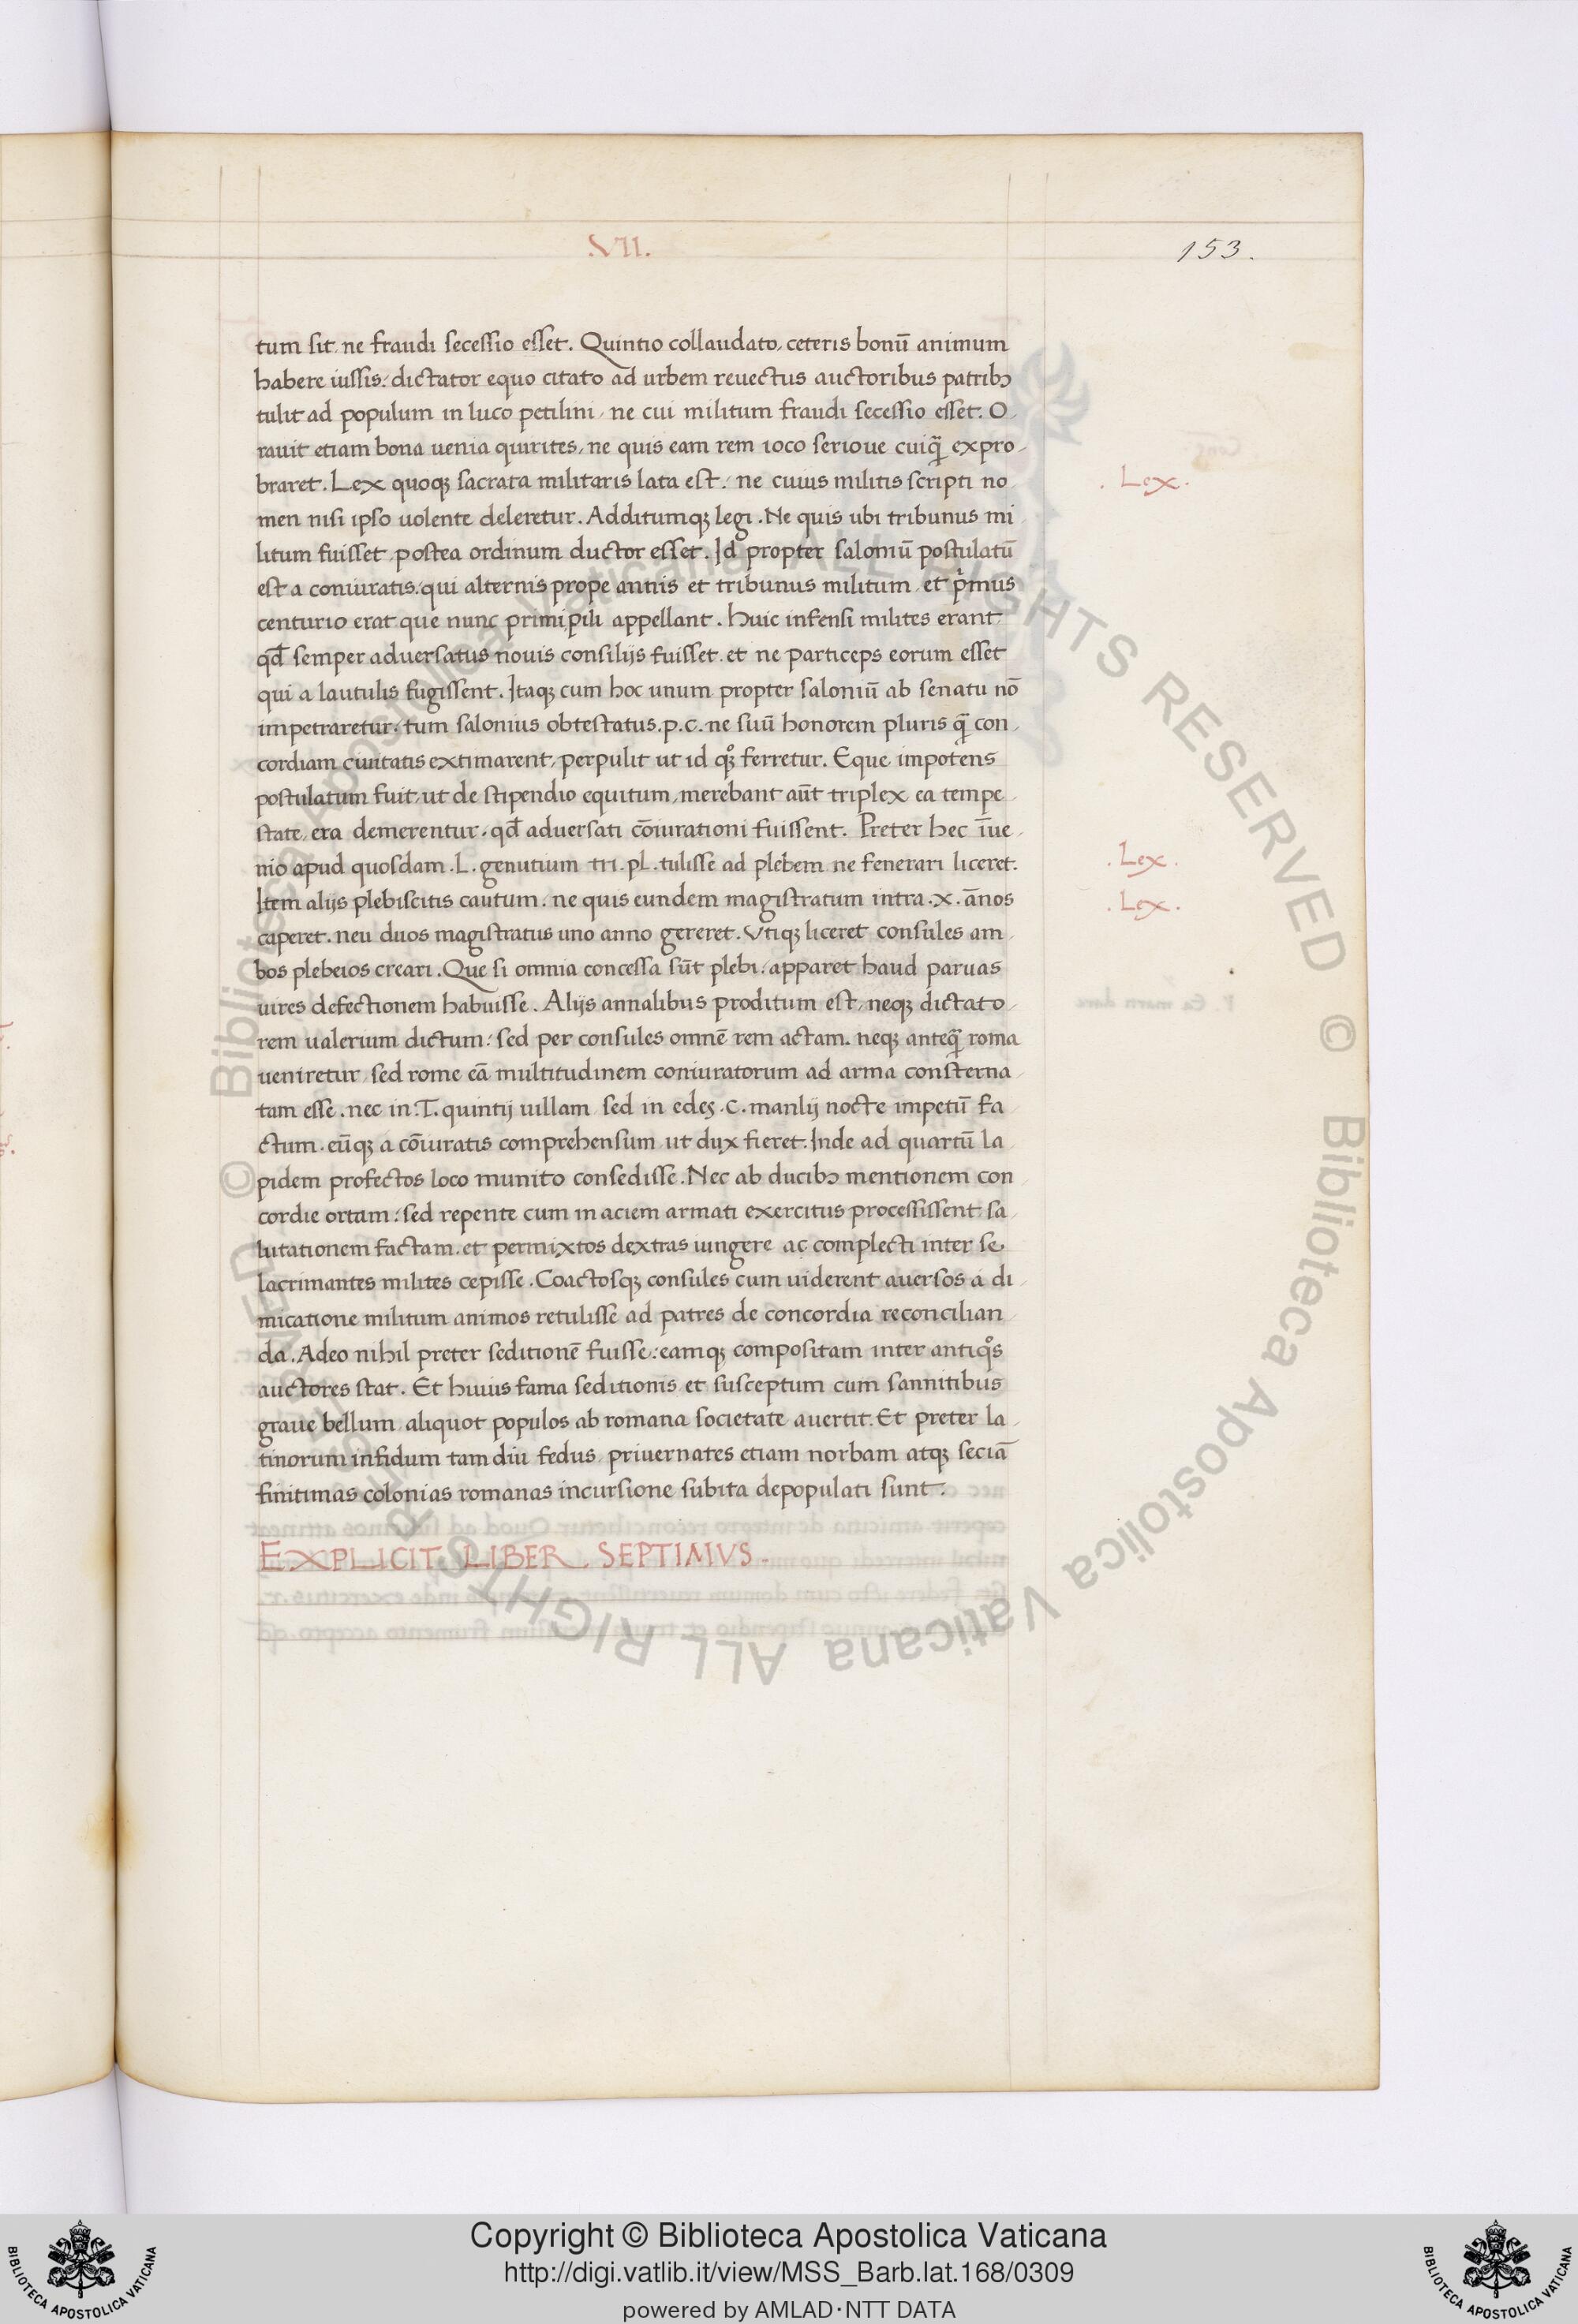 .VII.
153.
tum sit, ne fraudi secessio esset. Quintio collaudato, ceteris bonū animum
habere iussis: dictator equo citato ad urbem reuectus auctoribus patribꝫ
tulit ad populum in luco petilini, ne cui militum fraudi secessio esset. O
rauit etiam bona uenia quirites, ne quis eam rem ioco serioue cuiq̄ expro
braret. Lex quoqꝫ sacrata militaris lata est: ne cuius militis scripti no
. Lex .
men nisi ipso uolente deleretur. Additumqꝫ legi. Ne quis ubi tribunus mi
litum fuisset, postea ordinum ductor esset. Id propter saloniū postulatū
est a coniuratis: qui alternis prope annis et tribunus militum, et pͥmus
centurio erat que nunc primipili appellant. Huic infensi milites erant
qđ semper aduersatus nouis consilijs fuisset, et ne particeps eorum esset
qui a lautulis fugissent. Itaqꝫ cum hoc unum propter saloniū ab senatu nō
impetraretur: tum salonius obtestatus .p.c. ne suū honorem pluris q̄ con
cordiam ciuitatis extimarent, perpulit ut id qꝫͦ ferretur. Eque impotens
postulatum fuit, ut de stipendio equitum, merebant aūt triplex ea tempe
state, era demerentur. qđ aduersati cōiurationi fuissent. Preter hec īue
nio apud quosdam .L. genutium tri. pl. tulisse ad plebem ne fenerari liceret.
. Lex .
Item alijs plebiscitis cautum. ne quis eundem magistratum intra .x. ānos
. Lex .
caperet. neu duos magistratus uno anno gereret. Vtiqꝫ liceret consules am
bos plebeios creari. Que si omnia concessa sūt plebi: apparet haud paruas
uires defectionem habuisse. Alijs annalibus proditum est, neqꝫ dictato
rem ualerium dictum: sed per consules omnē rem actam. neqꝫ anteq̄ roma
ueniretur, sed rome eā multitudinem coniuratorum ad arma consterna
tam esse. nec in .T. quintij uillam sed in edes .C. manlij nocte impetū fa
ctum. eūqꝫ a cōiuratis comprehensum ut dux fieret. Inde ad quartū la
pidem profectos loco munito consedisse. Nec ab ducibꝫ mentionem con
cordie ortam: sed repente cum in aciem armati exercitus processissent sa
lutationem factam. et permixtos dextras iungere ac complecti inter se
lacrimantes milites cepisse. Coactosqꝫ consules cum uiderent auersos a di
micatione militum animos retulisse ad patres de concordia reconcilian
da. Adeo nihil preter seditionē fuisse: eamqꝫ compositam inter antiqͦs
auctores stat. Et huius fama seditionis et susceptum cum sannitibus
graue bellum aliquot populos ab romana societate auertit. Et preter la
tinorum infidum tam diu fedus, priuernates etiam norbam atqꝫ seciā
finitimas colonias romanas incursione subita depopulati sunt.
EXPLICIT. LIBER. SEPTIMVS.
© Biblioteca Apostolica Vaticana ALL RIGHTS RESERVED © Biblioteca Apostolica Vaticana ALL RIGHTS RESERVED
Copyright © Biblioteca Apostolica Vaticana
http://digi.vatlib.it/view/MSS_Barb.lat.168/0309
powered by AMLAD·NTT DATA
BIBLIOTECA APOSTOLICA VATICANA
BIBLIOTECA APOSTOLICA VATICANA